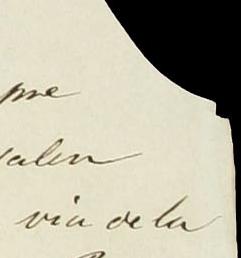 pre
valen
via de la